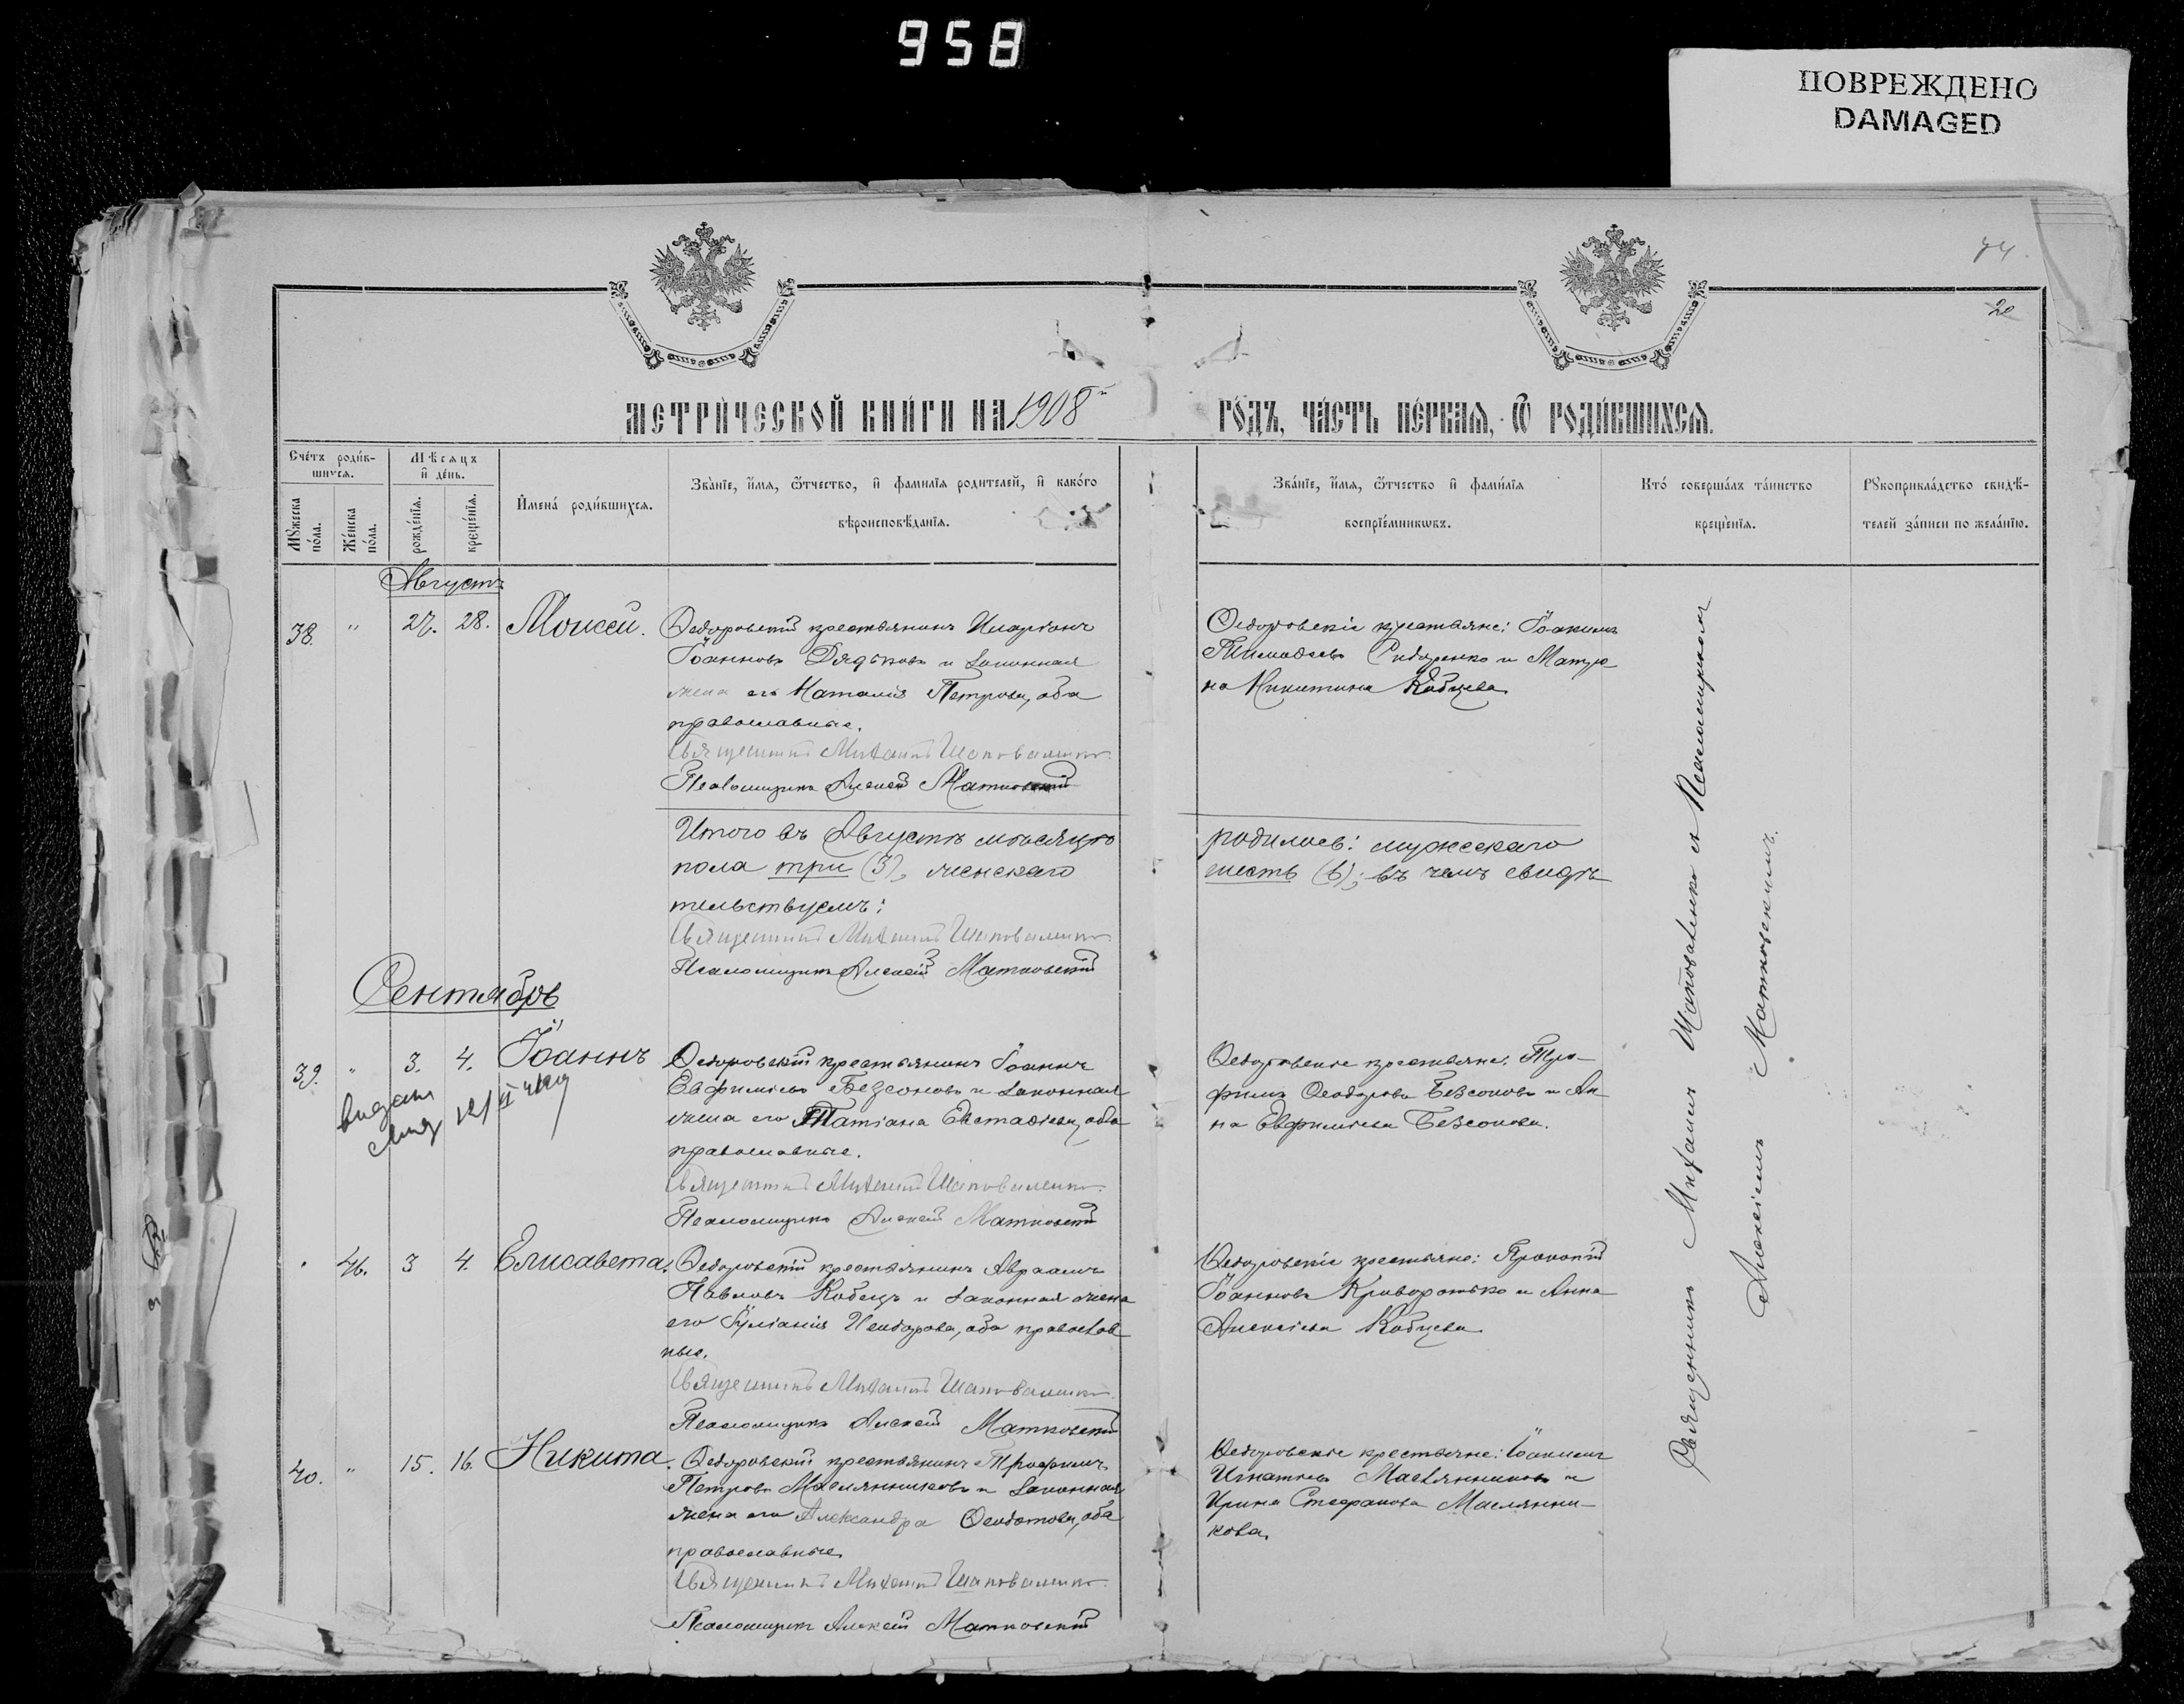 958
ПОВРЕЖДЕНО
DAMAGED
74.
20
МЕТРИЧЕСКОЙ КНИГИ НА 1908й ГОДЪ, ЧАСТЬ ПЕРВАЯ, Ѿ РОДИВШИХСЯ.
Счетъ родив-
шихся.
Мужеска пола.
Женска пола.
Мѣсяцъ и день.
рожденія.
крещенія.
Имена родившихся.
Званіе, имя, ѿтчество, и фамилія родителей, и какого
вѣроисповѣданія.
Званіе, имя, ѿтчество и фамилія
воспріемниковъ.
Кто совершалъ таинство
крещенія.
Рукоприкладство свидѣ-
телей записи по желанію.
Августъ
38. " 27. 28. Моисей.
Ѳедоровскій крестьянинъ Иларіонъ
Іоанновъ Дядьковъ и законная
жена его Наталія Петрова, оба
православные.
Священникъ Михаилъ Шаповаленко.
Псаломщикъ Алексій Матковскій
Ѳедоровскіе крестьяне: Іоакимъ
Тимоѳеевъ Сидоренко и Матро
на Никитина Кобцева.
Итого въ Августѣ мѣсяцѣ родилось: мужескаго
пола три (3), женскаго шесть (6); въ чемъ свидѣ
тельствуемъ:
Священникъ Михаилъ Шаповаленко.
Псаломщикъ Алексій Матковскій
Сентябрь
39. " 3. 4. Іоаннъ
Ѳедоровскій крестьянинъ Іоаннъ
Евфиміевъ Безсоновъ и законная
жена его Татіана Евстаѳіева, оба
православные.
Священникъ Михаилъ Шаповаленко.
Псаломщикъ Алексій Матковскій
Ѳедоровскіе крестьяне: Тро-
фимъ Ѳеодоровъ Безсоновъ и Ан
на Евфиміева Безсонова.
" 46. 3 4. Елисавета.
Ѳедоровскій крестьянинъ Авраамъ
Павловъ Кобецъ и законная жена
его Іуліанія Ѳеодорова, оба православ
ные.
Священникъ Михаилъ Шаповаленко.
Псаломщикъ Алексій Матковскій
Ѳедоровскіе крестьяне: Прокопій
Іоанновъ Криворотько и Анна
Алексіева Кобцева.
40. " 15. 16. Никита.
Ѳедоровскій крестьянинъ Трофимъ
Петровъ Маслянниковъ и законная
жена его Александра Ѳеодотова, оба
православные.
Священникъ Михаилъ Шаповаленко.
Псаломщикъ Алексій Матковскій
Ѳедоровскіе крестьяне: Іоакимъ
Игнатіевъ Маслянниковъ и
Ирина Стефанова Маслянни-
кова.
Священникъ Михаилъ Шаповаленко съ Псаломщикомъ
Алексіемъ Матковскимъ.